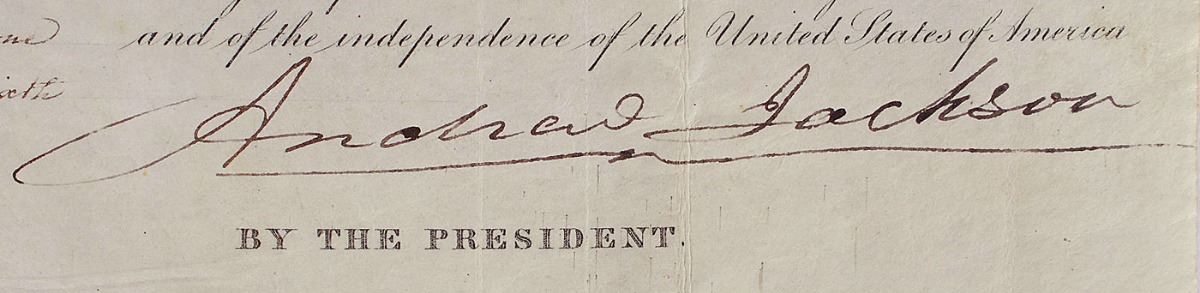 and of the independence of the United States of America
Andrew Jackson
BY THE PRESIDENT.